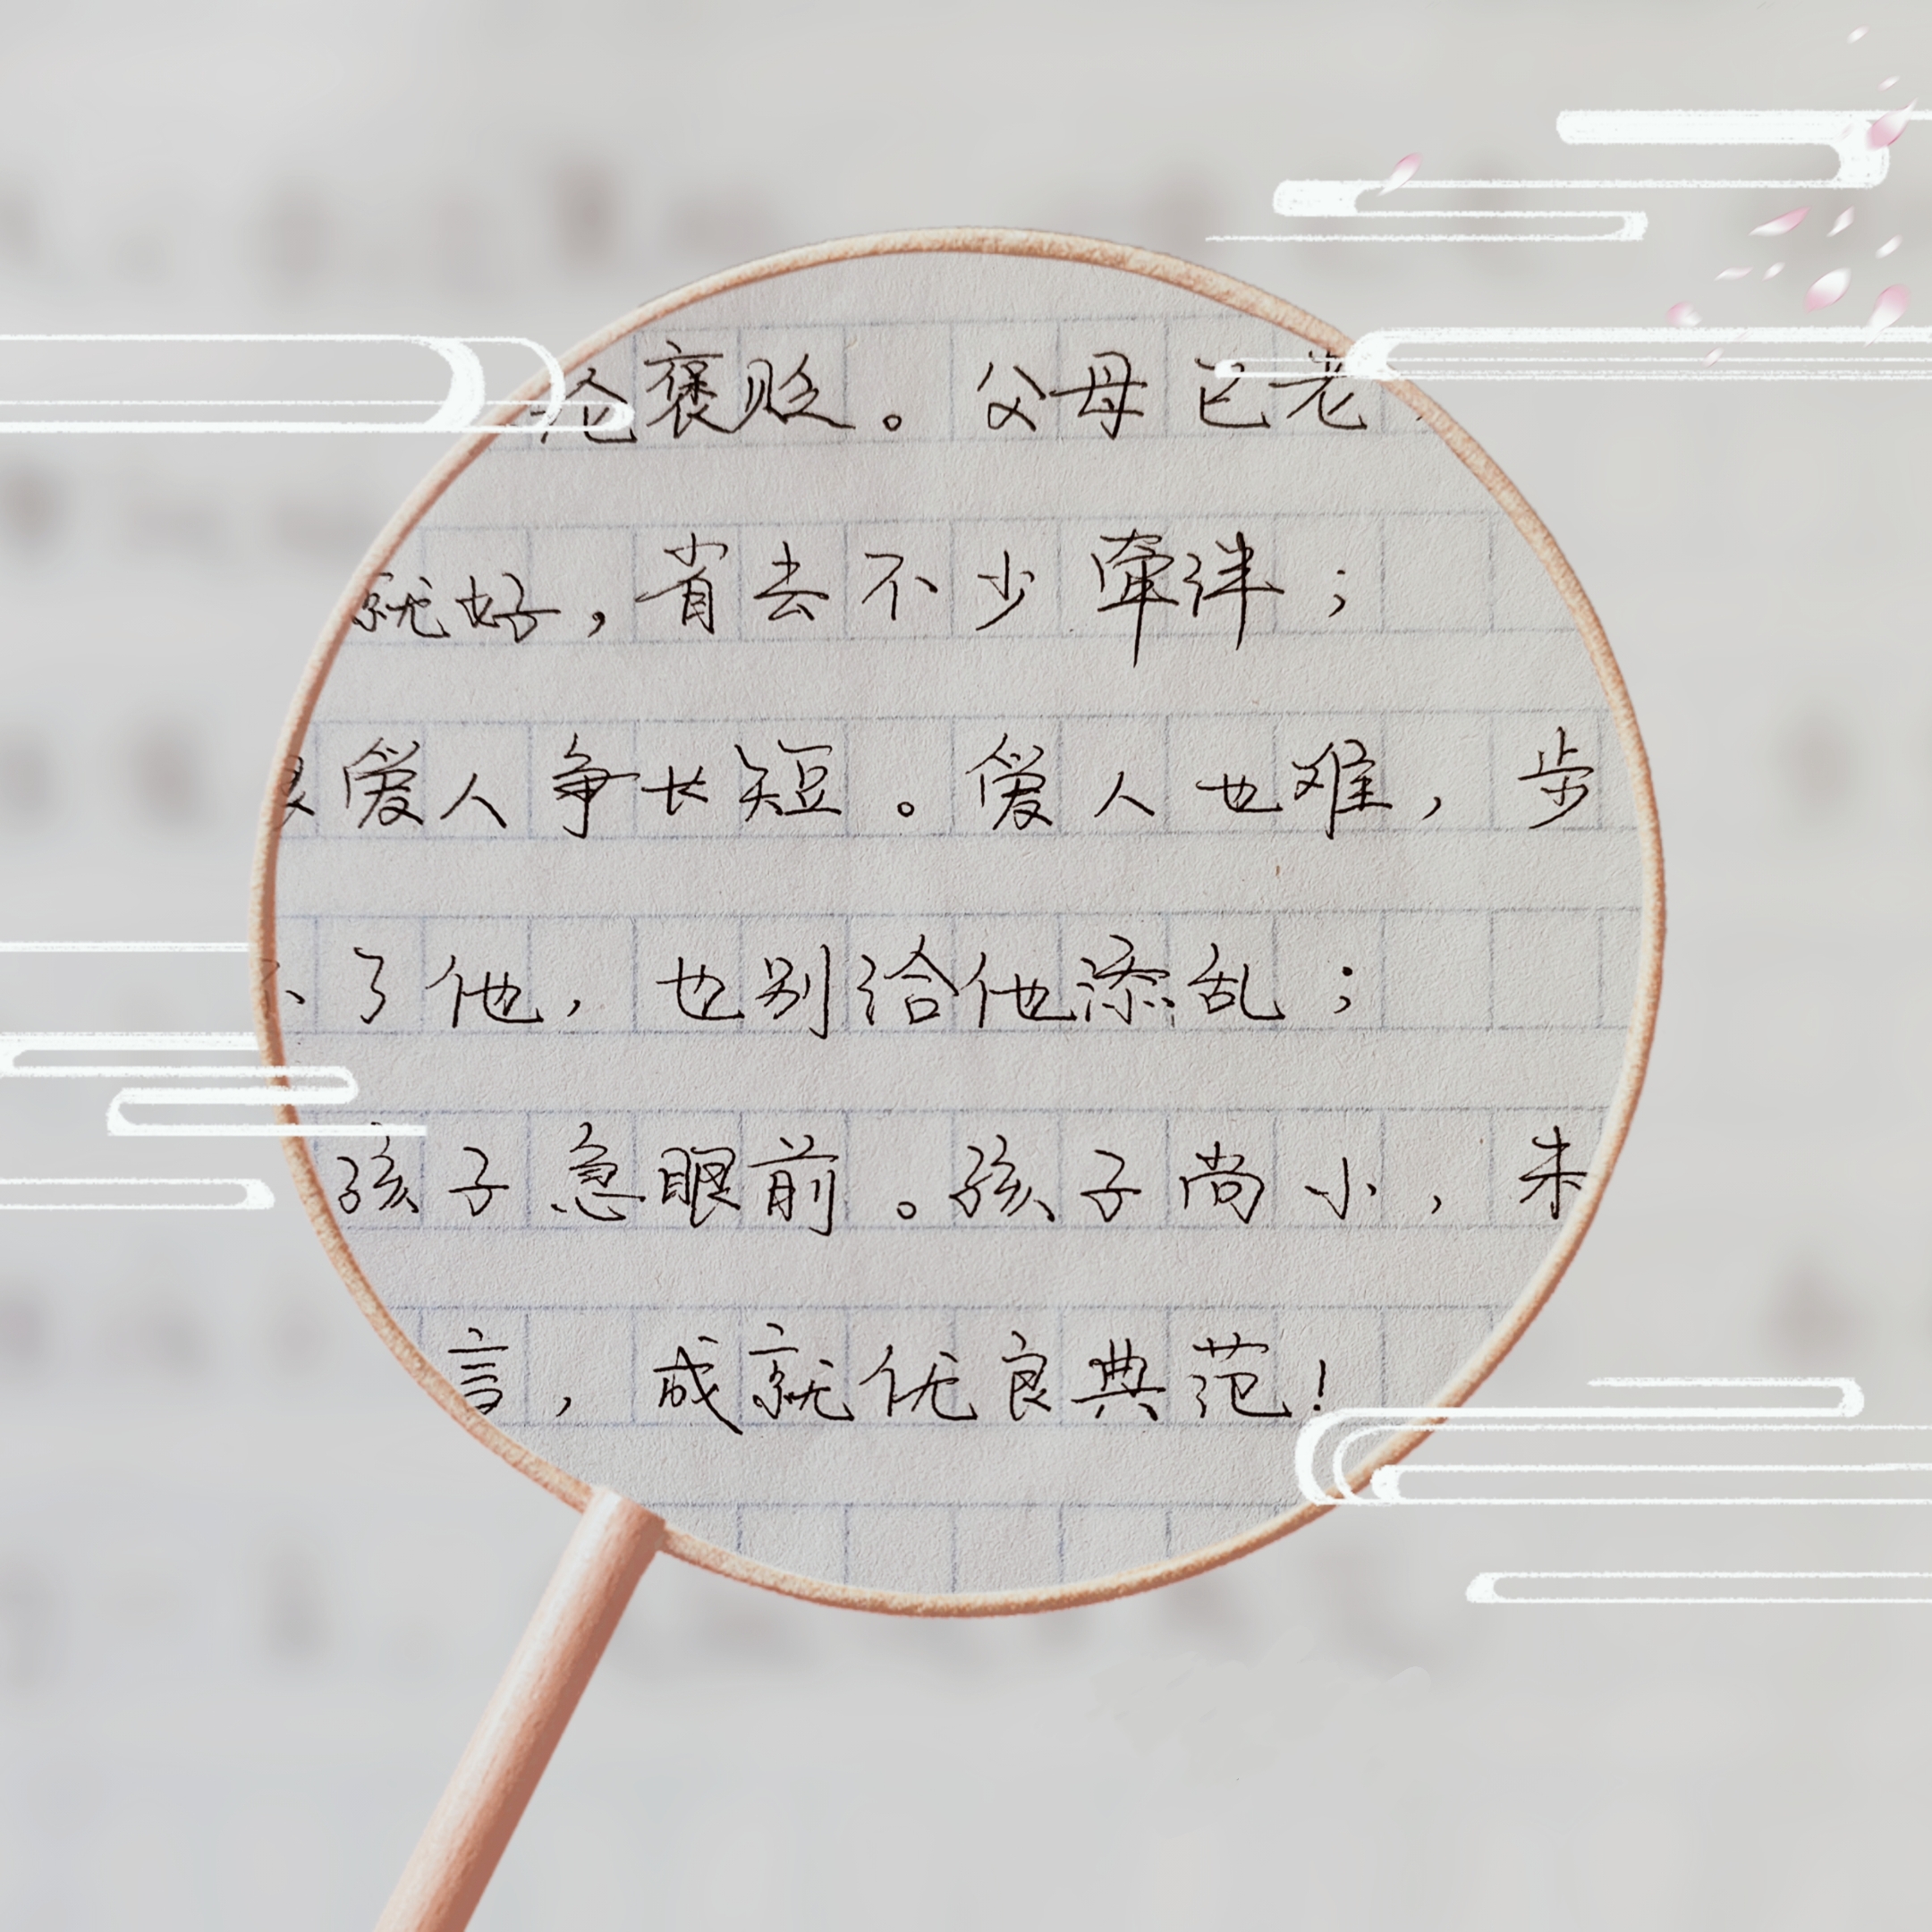 论褒贬。父母已老
就好，省去不少牵绊；
跟爱人争长短。爱人也难，步
不了他，也别给他添乱；
孩子急眼前。孩子尚小，未
言，成就优良典范！